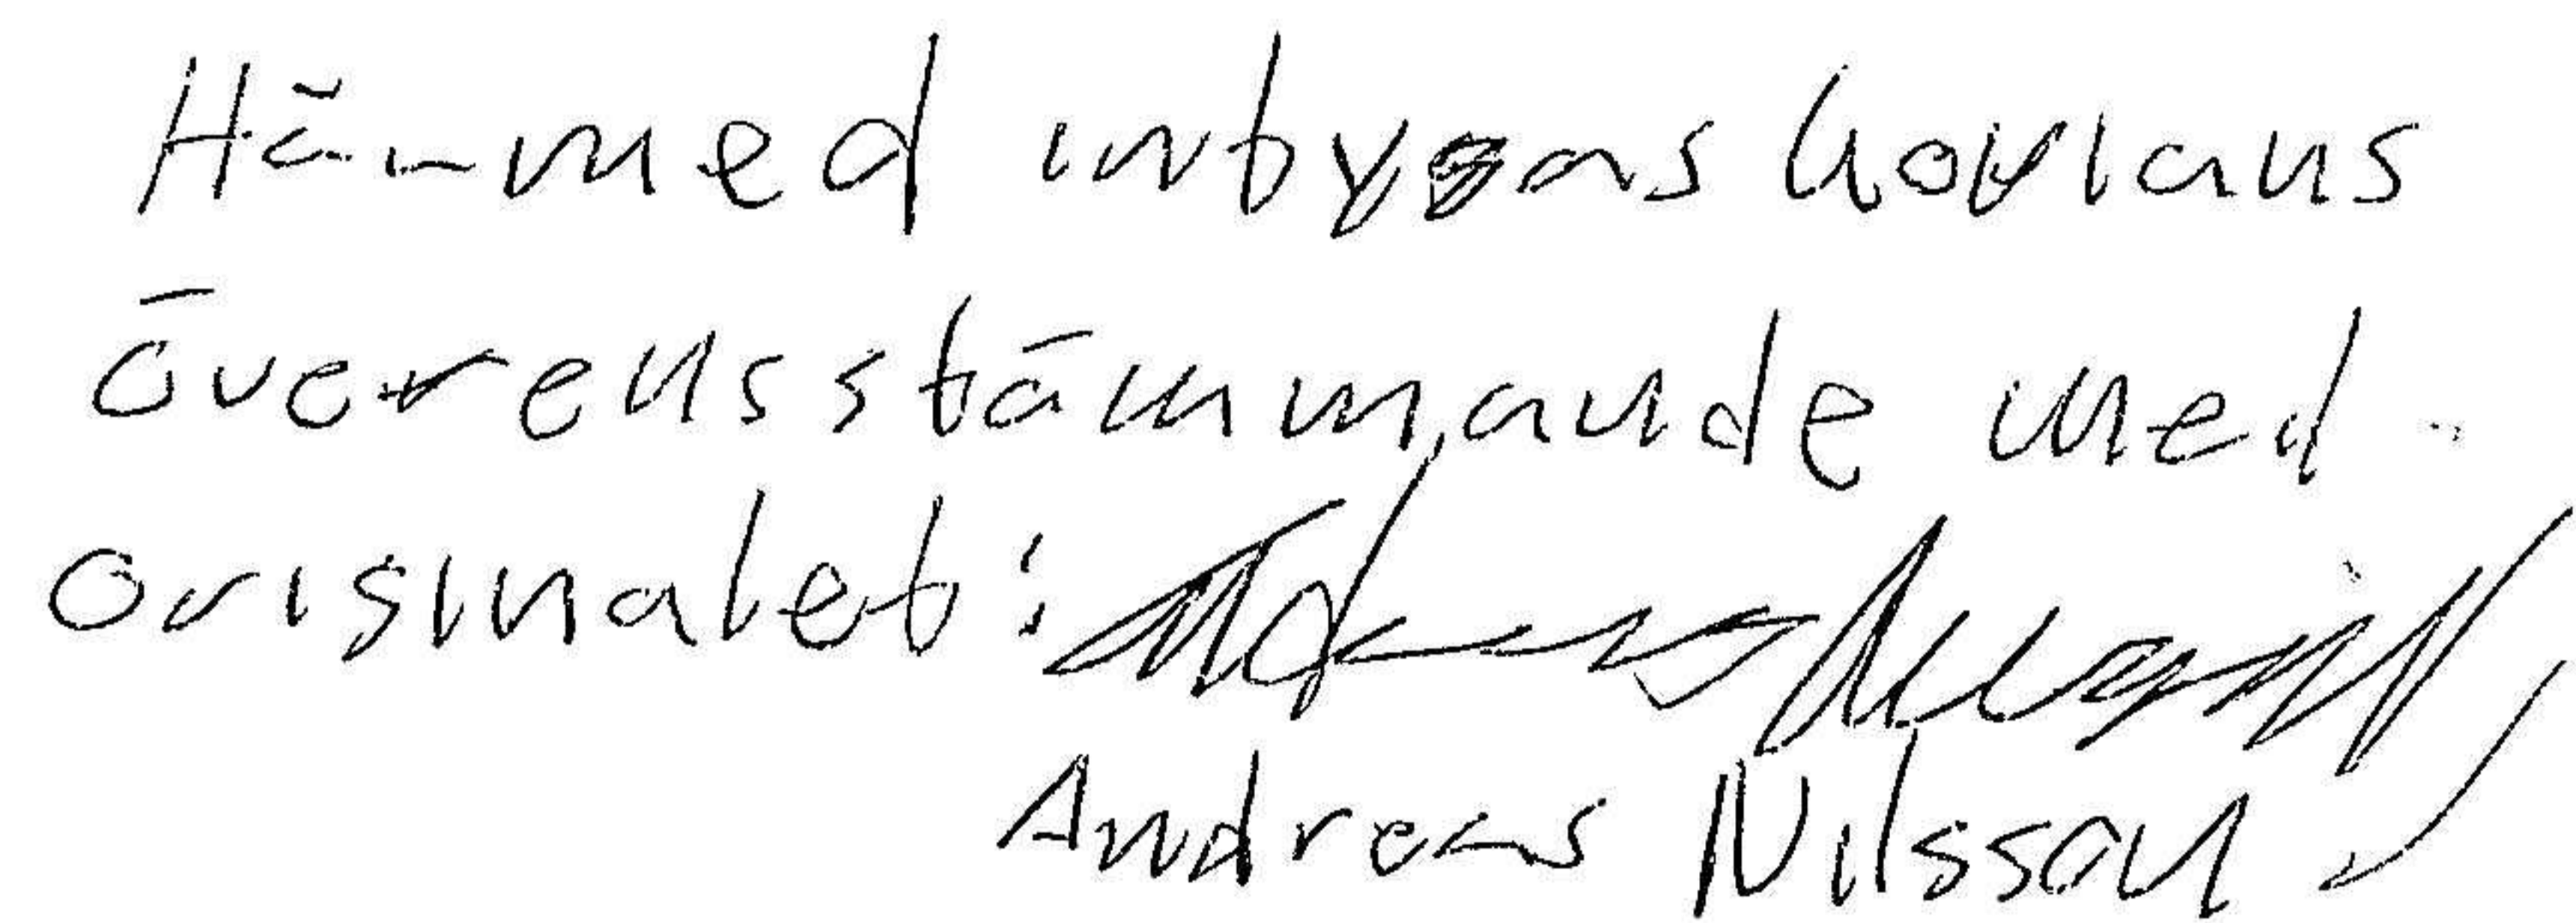 Härmed intygas kopians
överensstämmande med
originalet:
Andreas Nilsson